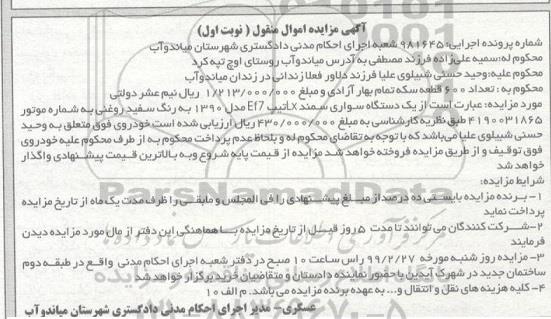 آگهی مزایده اموال منقول ( نوبت اول)
شماره پرونده اجرایی: ۹۸۱۶۴۵ شعبه اجرای احکام مدنی دادگستری شهرستان میاندوآب
محکوم له:سمیه علی‌زاده فرزند مصطفی به آدرس میاندوآب روستای اوچ تپه کرد
محکوم علیه:وحید حسنی شبیلوی علیا فرزند دلاور فعلا زندانی در زندان میاندوآب
محکوم به : تعداد ۶۰۰ قطعه سکه تمام بهار آزادی و مبلغ ۱/۲۱۳/۰۰۰/۰۰۰ ریال نیم عشر دولتی
مورد مزایده: عبارت است از یک دستگاه سواری سمند LX تیپ Ef7 مدل ۱۳۹۰ به رنگ سفید روغنی به شماره موتور
۴۱۹۰۰۳۱۸۶۵ طبق نظریه کارشناسی به مبلغ ۴۳۰/۰۰۰/۰۰۰ ریال ارزیابی شده است خودروی فوق متعلق به وحید
حسنی شبیلوی علیا می‌باشد که با توجه به تقاضای محکوم له و بلحاظ عدم پرداخت محکوم به از طرف محکوم علیه خودروی
فوق توقیف و از طریق مزایده فروخته خواهد شد مزایده از قیمت پایه شروع و به بالاترین قیمت پیشنهادی واگذار
خواهد شد
شرایط مزایده:
۱- برنده مزایده بایستی ده درصد از مبلغ پیشنهادی را فی المجلس و مابقی را ظرف مدت یک ماه از تاریخ مزایده
پرداخت نماید
۲-شرکت کنندگان می توانند تا مدت ۵ روز قبل از تاریخ مزایده با هماهنگی این دفتر از مال مورد مزایده دیدن
فرمایند
۳- مزایده روز شنبه مورخه ۹۹/۲/۲۷ راس ساعت ۱۰ صبح در دفتر شعبه اجرای احکام مدنی واقع در طبقه دوم
ساختمان جدید در شهرک آیدین با حضور نماینده دادستان و متقاضیان خرید برگزار خواهد شد
۴- کلیه هزینه های نقل و انتقال و... به عهده برنده مزایده می باشد. م الف ۱۰
عسگری- مدیر اجرای احکام مدنی دادگستری شهرستان میاندوآب
ParsNamadData